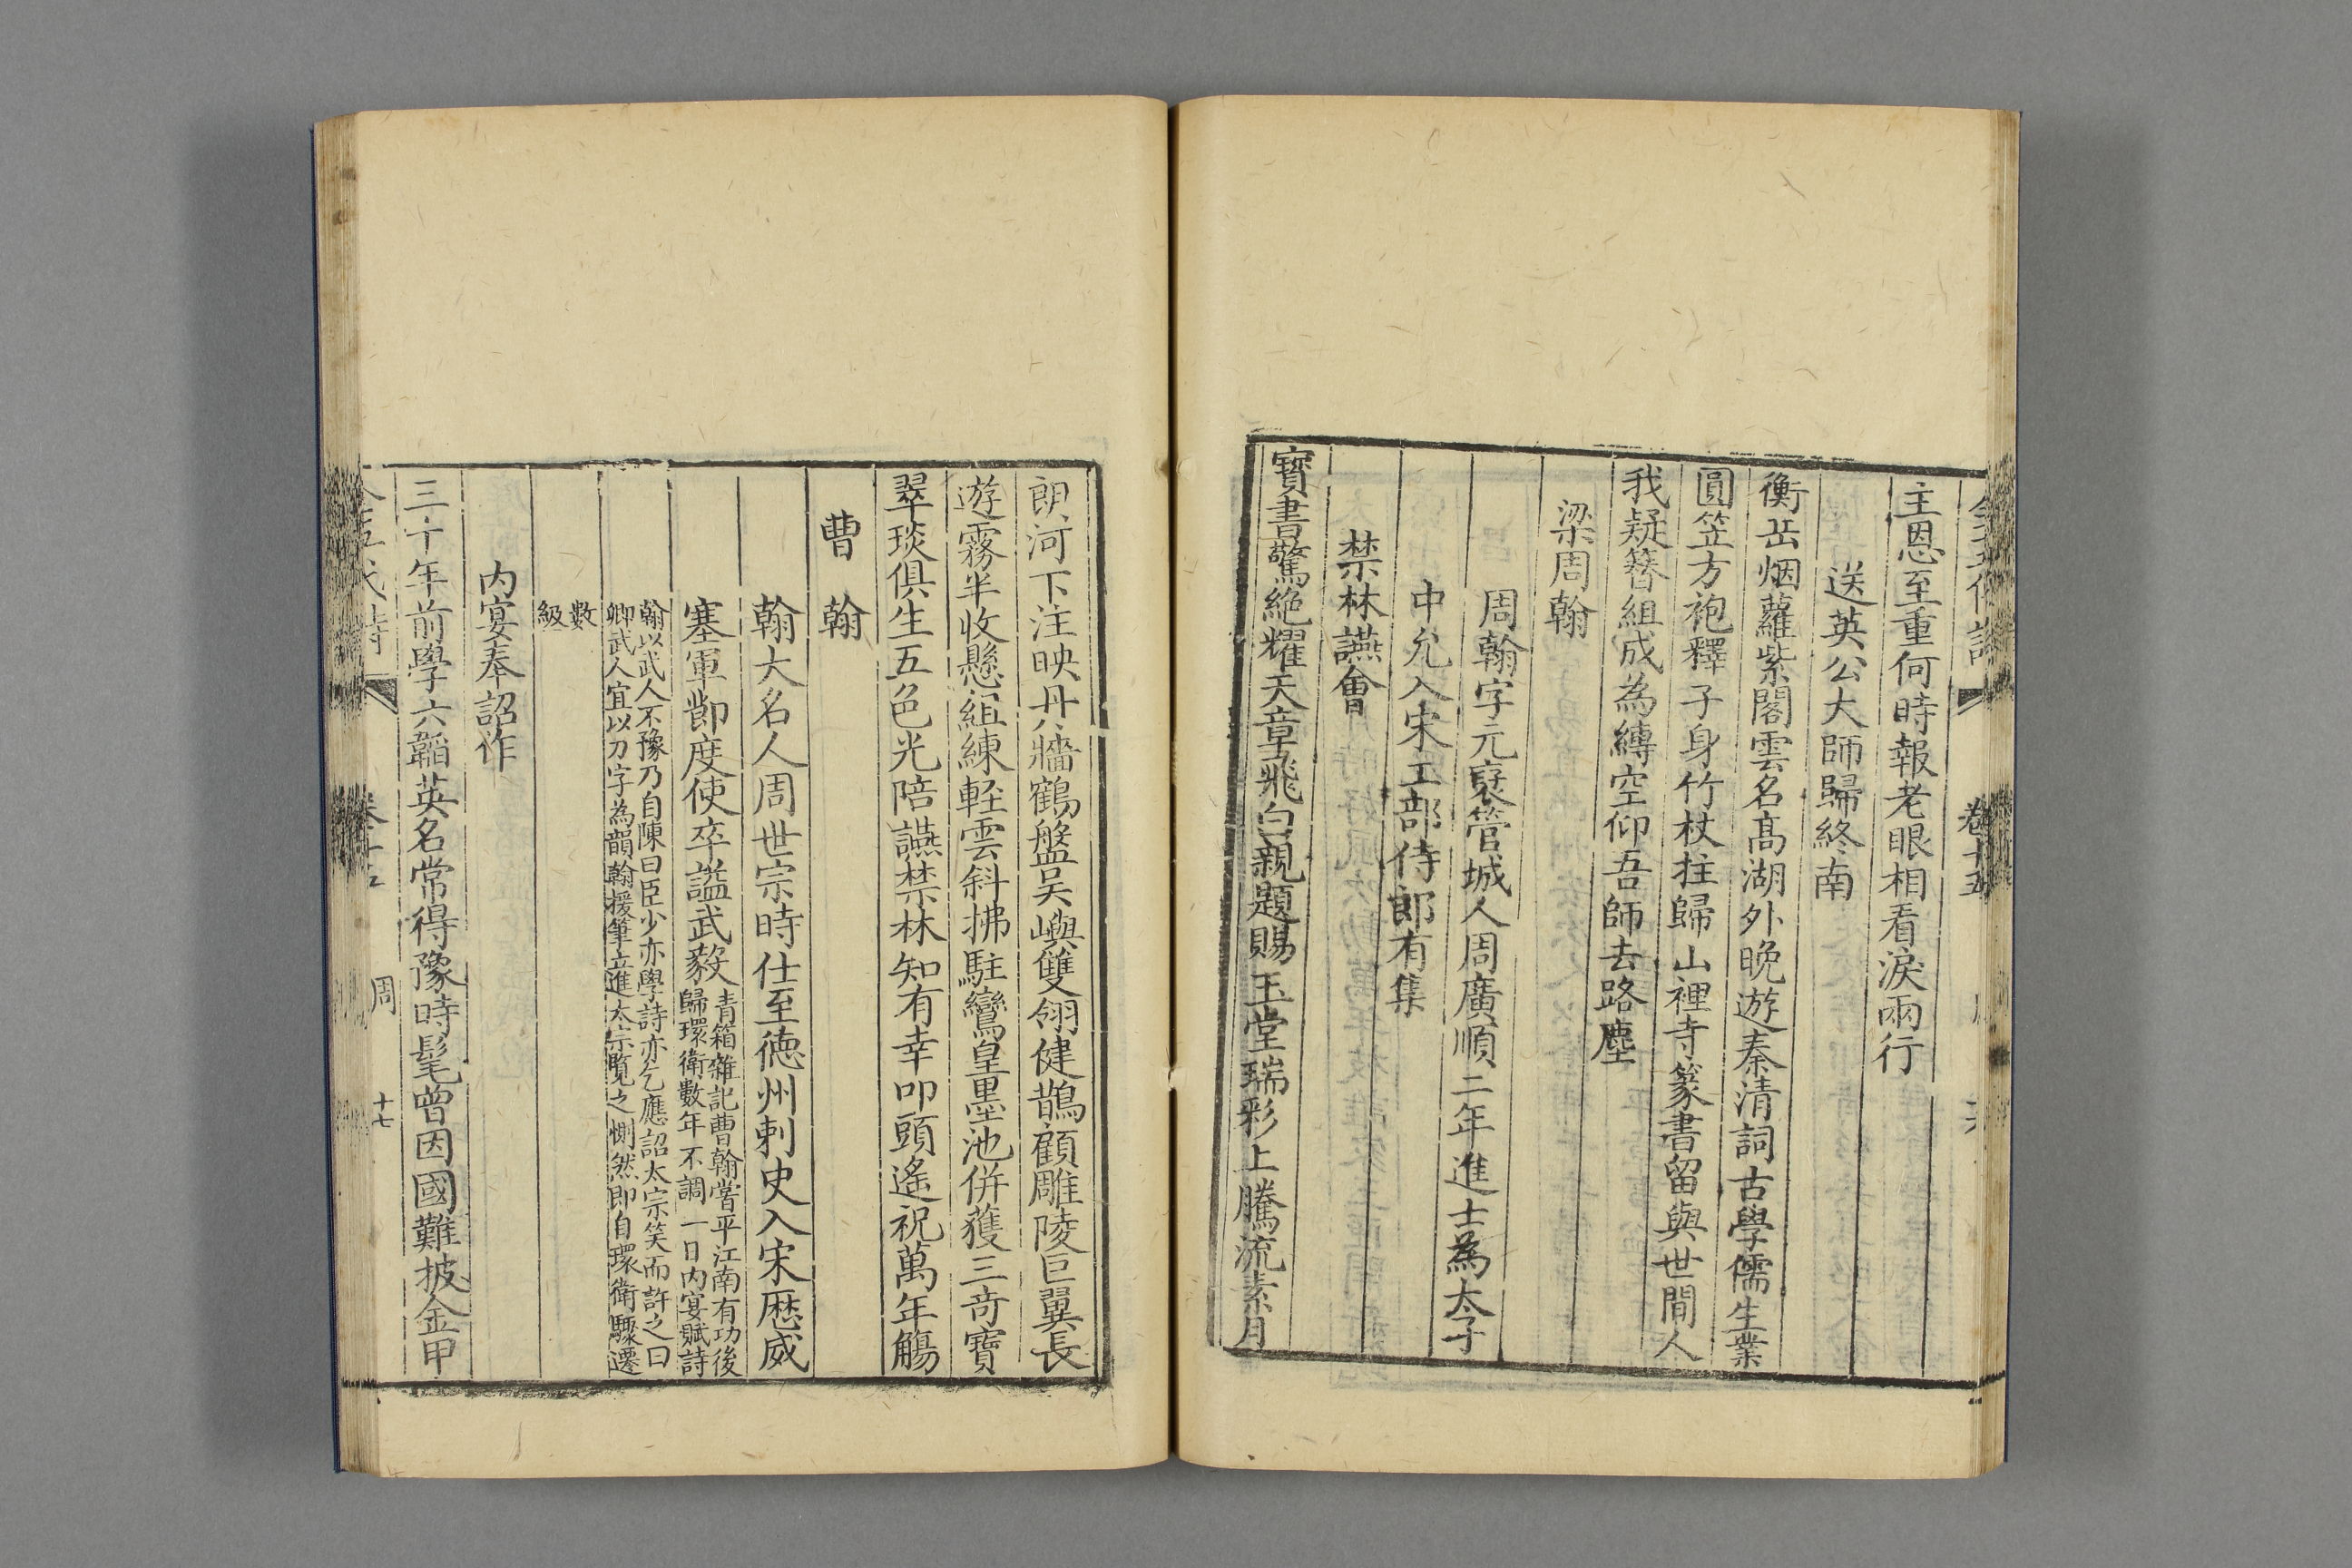 全五代詩 卷十五
主恩至重何時報老眼相看淚兩行
送英公大師歸終南
衡岳烟蘿紫閣雲名高湖外晚遊秦清詞古學儒生業
圓笠方袍釋子身竹杖拄歸山裡寺篆書留與世間人
我疑簪組成為縛空仰吾師去路塵
梁周翰
周翰字元褒管城人周廣順二年進士為太子
中允入宋工部侍郎有集
禁林讌會
寶書驚絶耀天章飛白親題賜玉堂瑞彩上騰流素月
朗河下注映丹牆鶴盤吴嶼雙翎健鵲顧雕陵巨翼長
遊霧半收懸組練輕雲斜拂駐鸞皇墨池併獲三奇寶
翠琰俱生五色光陪讌禁林知有幸叩頭遙祝萬年觴
曹翰
翰大名人周世宗時仕至德州刺史入宋歷威
塞軍節度使卒謚武毅
青箱雜記曹翰嘗平江南有功後
歸環衛數年不調一日内宴賦詩
翰以武人不豫乃自陳曰臣少亦學詩亦乞應詔太宗笑而許之曰
卿武人宜以刀字為韻翰援筆立進太宗覽之惻然即自環衛驟遷
數
級
内宴奉詔作
三十年前學六韜英名常得豫時髦曾因國難披金甲
全五代詩 卷十五 周 十七